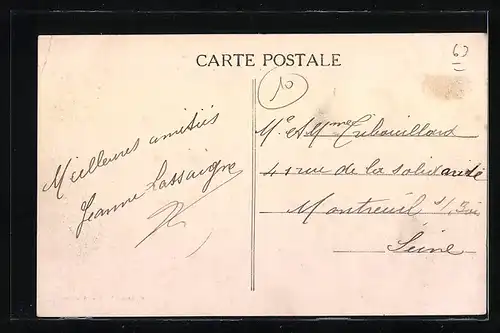 CARTE POSTALE
63
10
Meilleures amitiés
Jeanne Lassaigne
Mr et Mme Tribouillard
41 rue de la solidarité
Montreuil s/ Bois
Seine